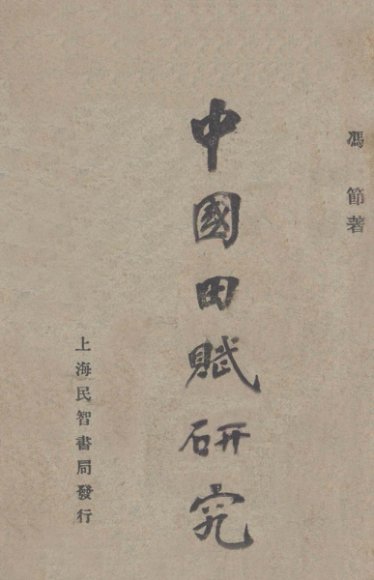 馮節著
中國田賦研究
上海民智書局發行